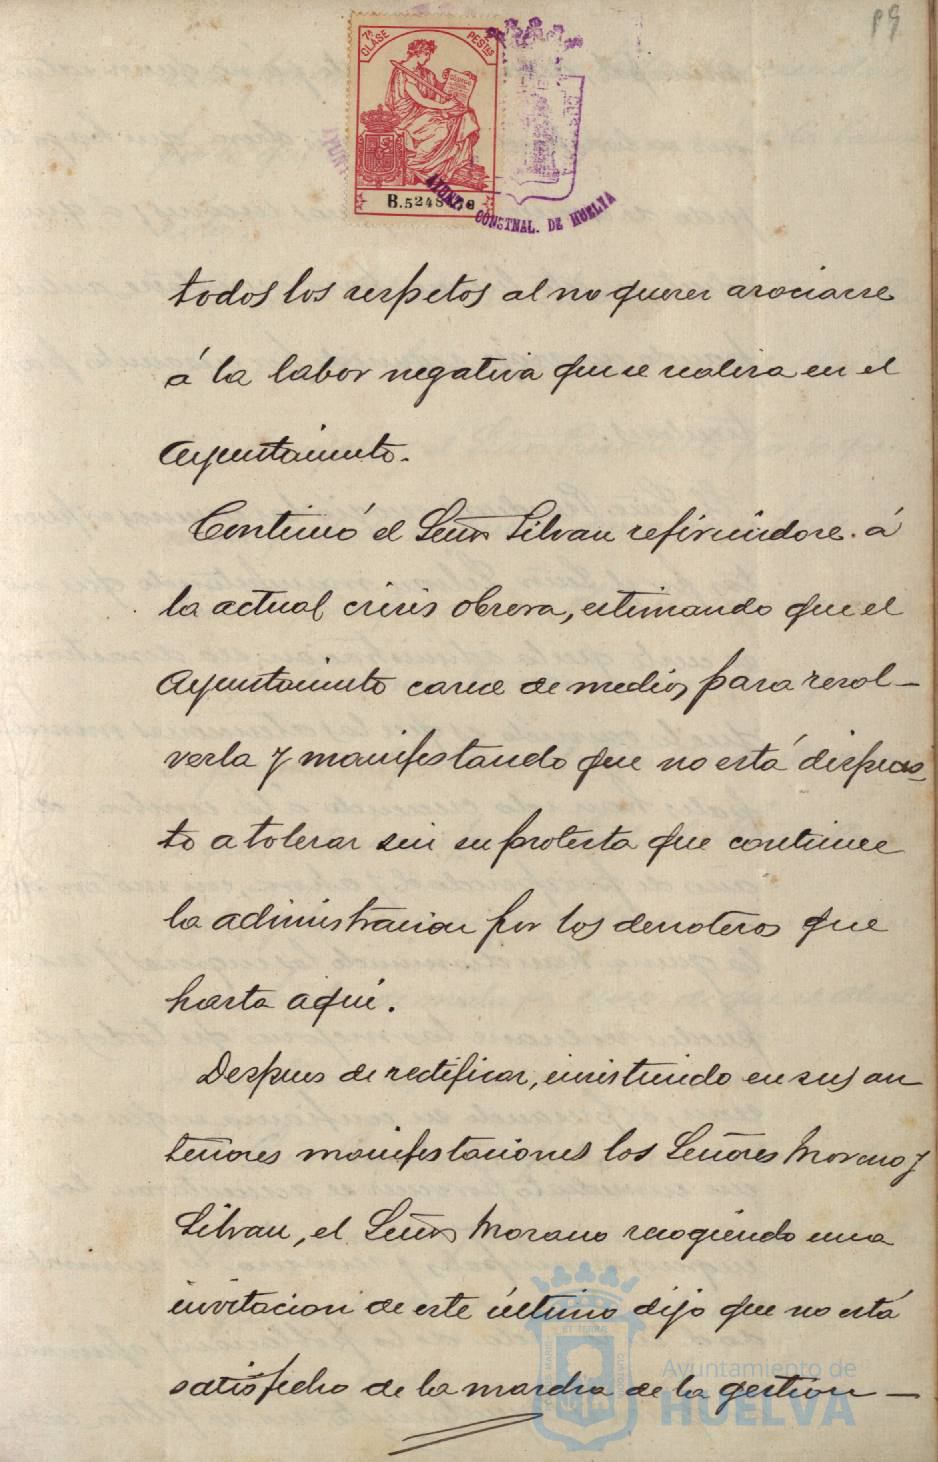 P9
7ª CLASE
2 PESTAS
AYUNT. CONSTNAL. DE HUELVA
todos los respetos al no querer asociarse
á la labor negativa que se realiza en el
Ayuntamiento.
Continuó el Señor Silvan refiriéndose á
la actual crisis obrera, estimando que el
Ayuntamiento carece de medios para resol-
verla y manifestando que no está dispues-
to a tolerar sin su protesta que continue
la administracion por los derroteros que
hasta aqui.
Despues de rectificar, insistiendo en sus an
teriores manifestaciones los Señores Moreno y
Silvan, el Señor Morano recogiendo una
invitacion de este último dijo que no está
satisfecho de la marcha de la gestion —
Ayuntamiento de
HUELVA